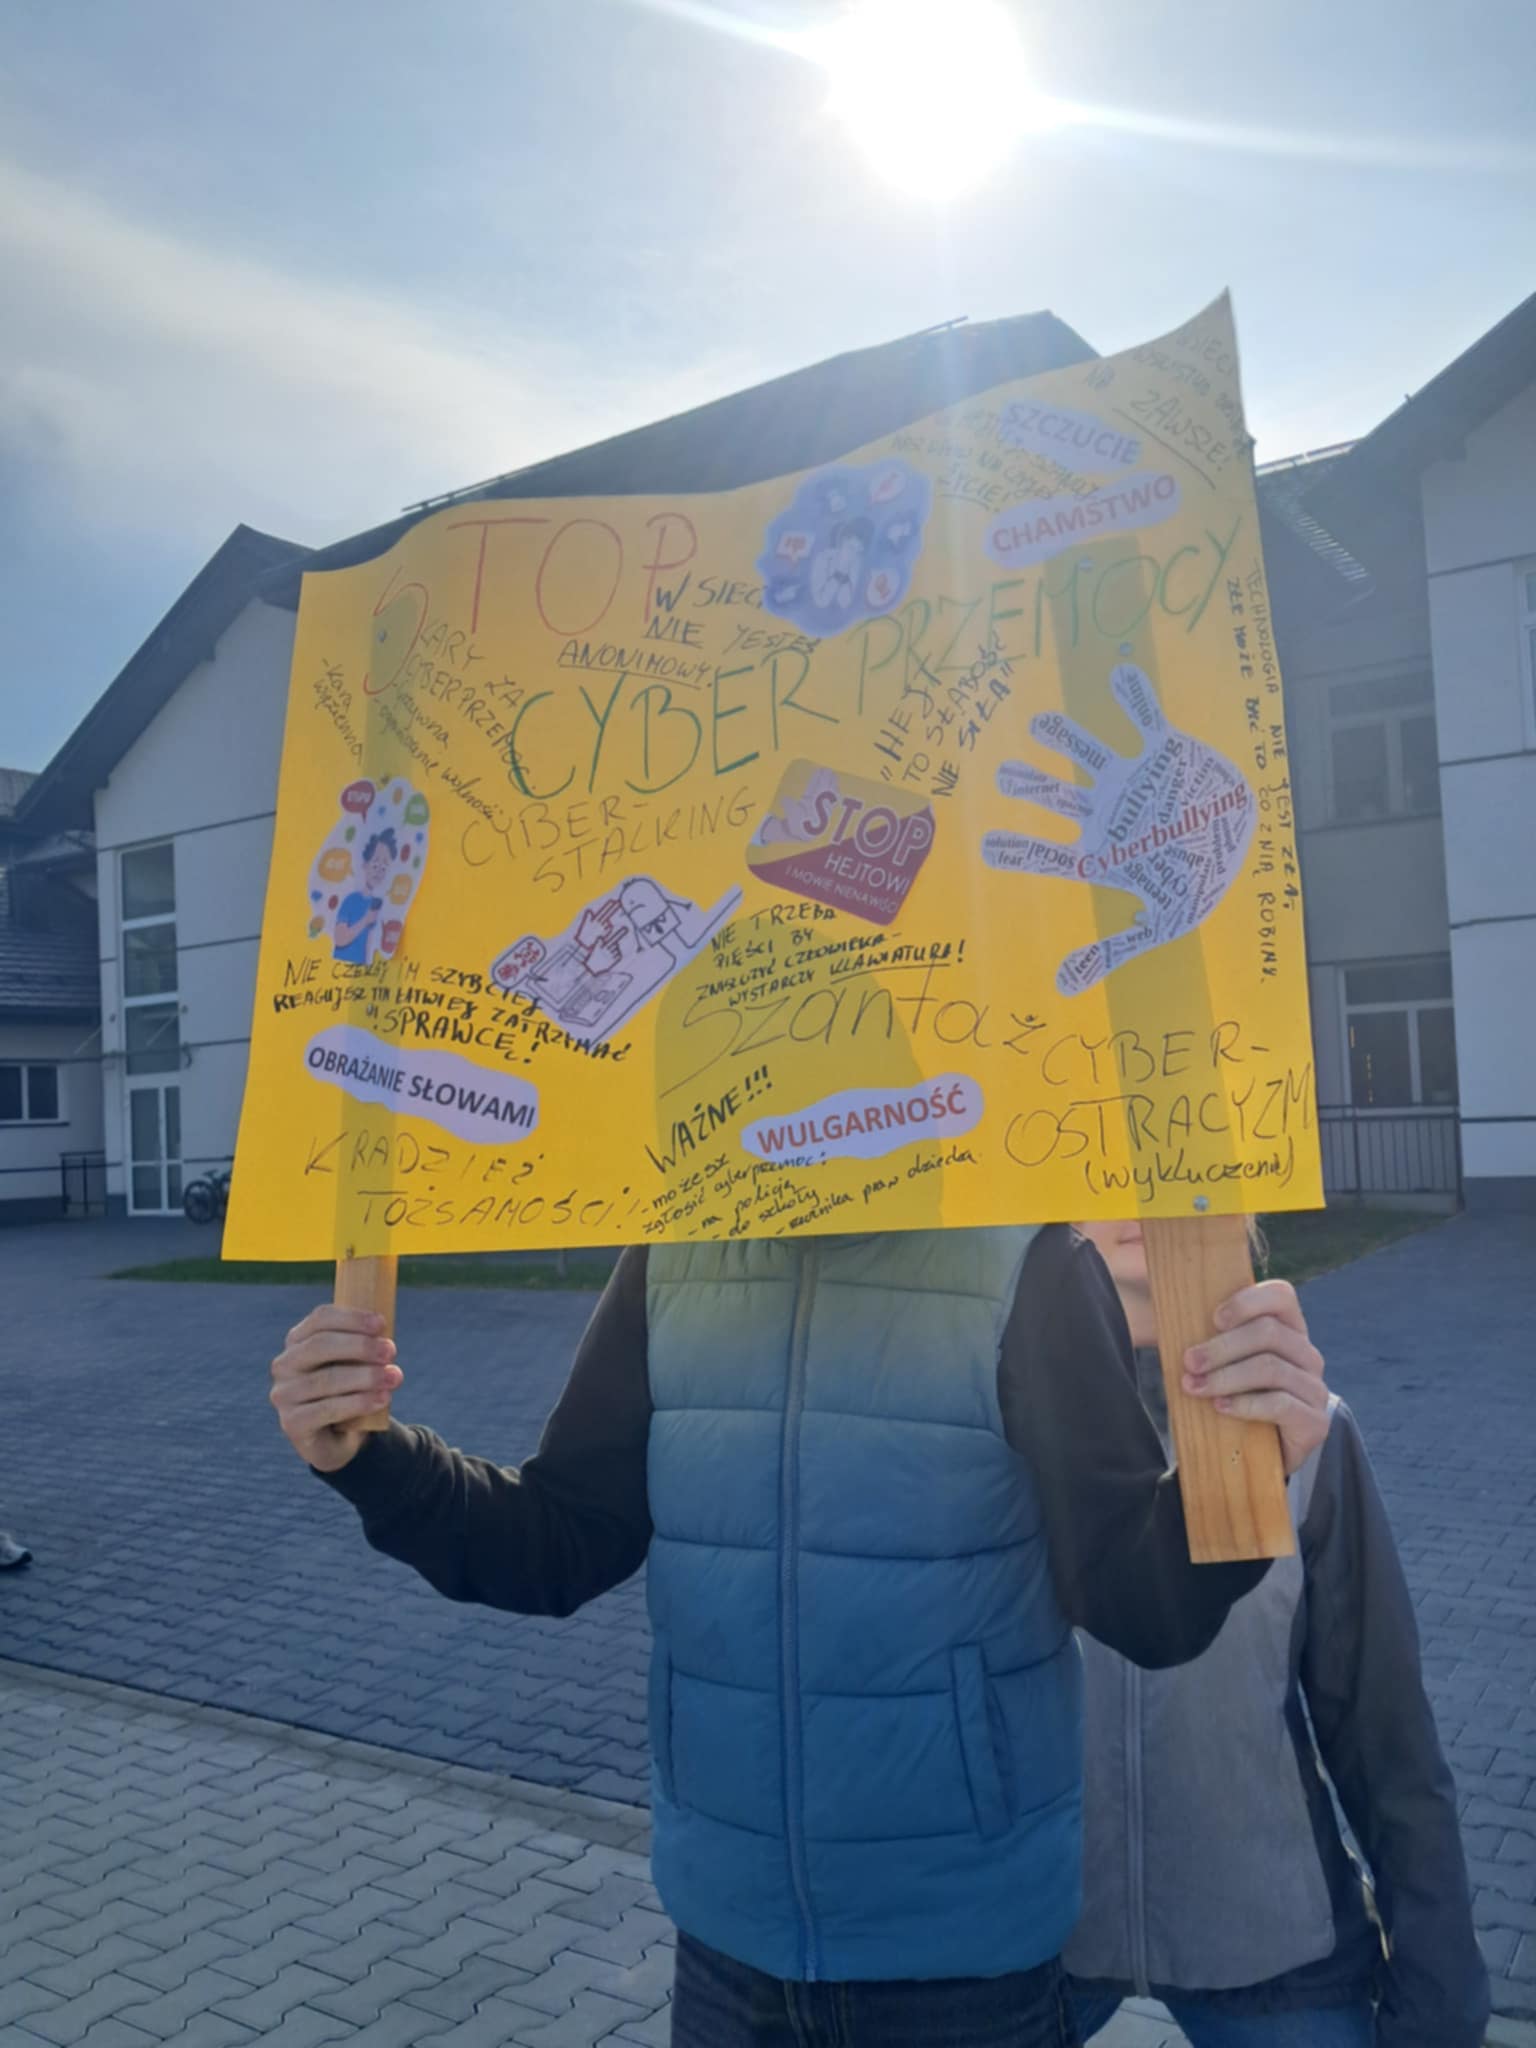 NA ZAWSZE!
SZCZUCIE
ŻYCIE!
CHAMSTWO
STOP
W SIECI
NIE JESTEŚ
ANONIMOWY!
CYBER PRZEMOCY
KARY ZA
CYBERPRZEMOC
-kara
więzienna
-grzywna
-ograniczenie wolności
CYBER-
STALKING
"HEJT
TO SŁABOŚĆ
NIE SIŁA"
STOP
HEJTOWI
I MOWIE NIENAWIŚCI
online
message
internet
bullying
danger
victim
Cyberbullying
solution
fear
social
abuse
cyber
teenage
web
teen
TECHNOLOGIA NIE JEST ZŁA,
ZŁE MOŻE BYĆ TO CO Z NIĄ ROBIMY.
NIE TRZEBA
PIĘŚCI BY
ZNISZCZYĆ CZŁOWIEKA-
WYSTARCZY KLAWIATURA!
NIE CZEKAJ IM SZYBCIEJ
REAGUJESZ TYM ŁATWIEJ ZATRZYMAĆ
SPRAWCĘ!
OBRAŻANIE SŁOWAMI
Szantaż
CYBER-
OSTRACYZM
(wykluczenie)
WAŻNE!!!
WULGARNOŚĆ
KRADZIEŻ
TOŻSAMOŚCI!
-możesz
zgłosić cyberprzemoc:
- na policję
- do szkoły
- rzecznika praw dziecka.